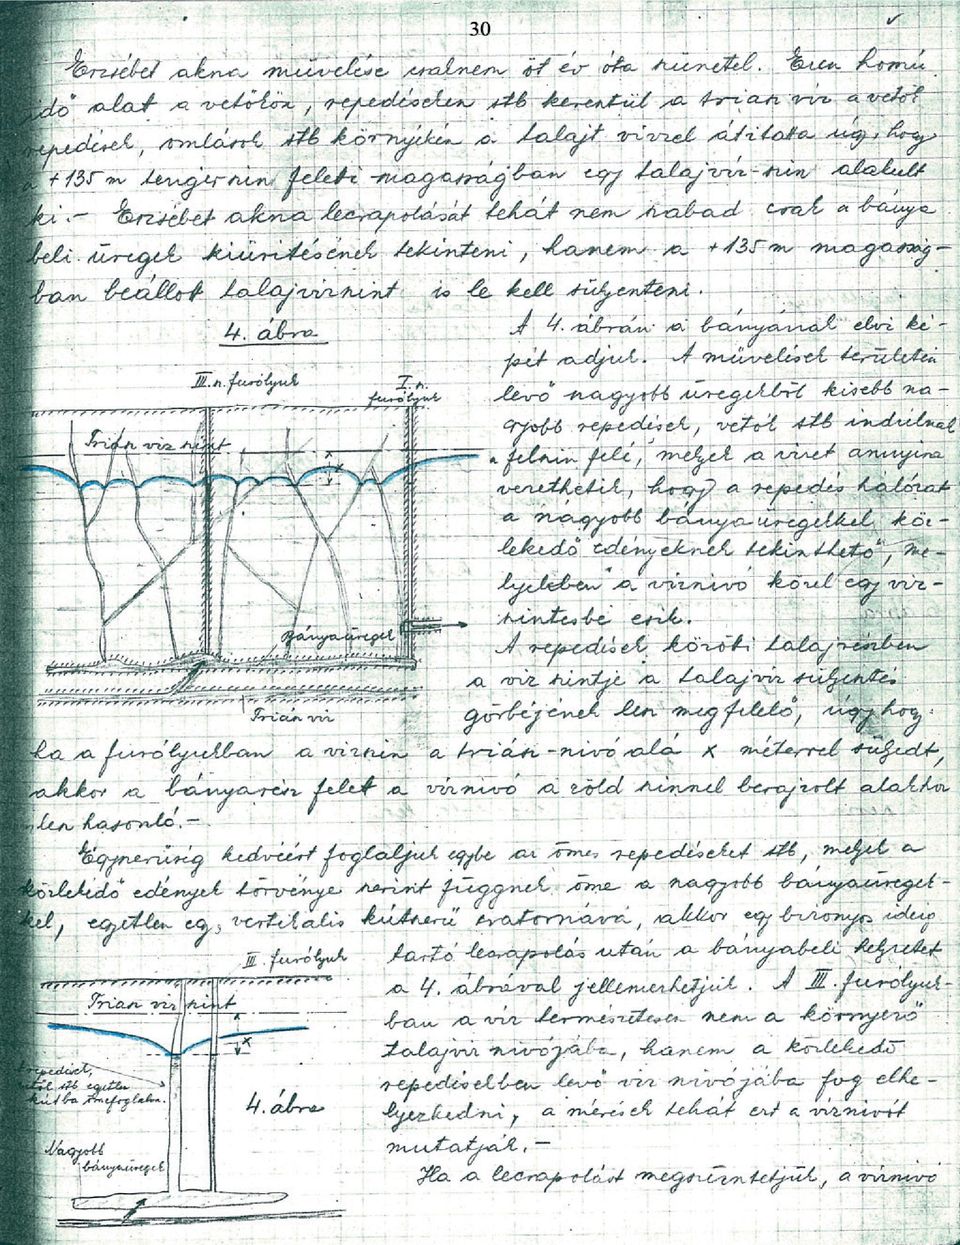 30
Erzsébet akna művelése csaknem öt év óta szünetel. Ezen hosszú
idő alatt a vetőkön, repedéseken stb keresztül a triász víz a vetők
repedések, omlások stb környékén a talajt vízzel átitatta úgy, hogy
a +135 m tengerszin feletti magasságban egy talajvíz-szin alakult
ki.- Erzsébet akna lecsapolását tehát nem szabad csak a bánya
beli üregek kiürítésének tekinteni, hanem a +135 m magasság-
ban beállott talajvízszint is le kell süllyenteni.
4. ábra
A 4. ábrán a bányának elvi ké-
pét adjuk. A művelések területén
levő nagyobb üregekből kisebb na-
gyobb repedések, vetők stb indulnak
a felszin felé, melyek a vizet annyira
vezethetik, hogy a repedés hálózat
a nagyobb bányaüregekkel köz-
lekedő edényeknek tekinthető, me-
lyekben a víznivó közel egy víz-
szintesbe esik.
A repedések közötti talajrészben
a víz szintje a talajvíz sülyentés
görbéjének len megfelelő, úgy hogy
III. sz. furólyuk
I. sz.
furólyuk
Triász víz szint
x
Bányaüregek
Triász víz
ha a furólyukban a vizszin a triász-nivó alá x méterrel sülyedt,
akkor a bányarész felett a víznivó a zöld szinnel berajzolt alakhoz
len hasonló.-
Egyszerűség kedvéért foglaljuk egybe az összes repedéseket stb, melyek a
közlekedő edények törvénye szerint függnek össze a nagyobb bányaüregek-
kel, egyetlen egy, vertikális kútszerű csatornává, akkor egy bizonyos ideig
tartó lecsapolás után a bányabeli helyzetet
a 4. ábrával jellemezhetjük. A III. furólyuk-
ban a víz természetesen nem a környező
talajvíz nivójába, hanem a közlekedő
repedésekben levő víz nivójába fog elhe-
lyezkedni, a mérések tehát ezt a víznivót
mutatják.-
Ha a lecsapolást megszüntetjük, a víznivó
III. furólyuk
Triász víz szint
x
repedések,
vetők stb egyetlen
kútba összefoglalva.
4. ábra
Nagyobb
bányaüregek